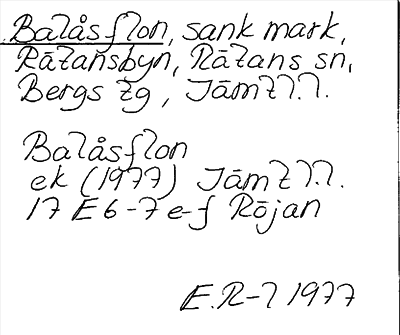 Balåsflon, sank mark,
Rätansbyn, Rätans sn,
Bergs tg, Jämtl.l.
Balåsflon
ek (1977) Jämtl.l.
17 E 6-7 e-f Röjan
E.R-l 1977